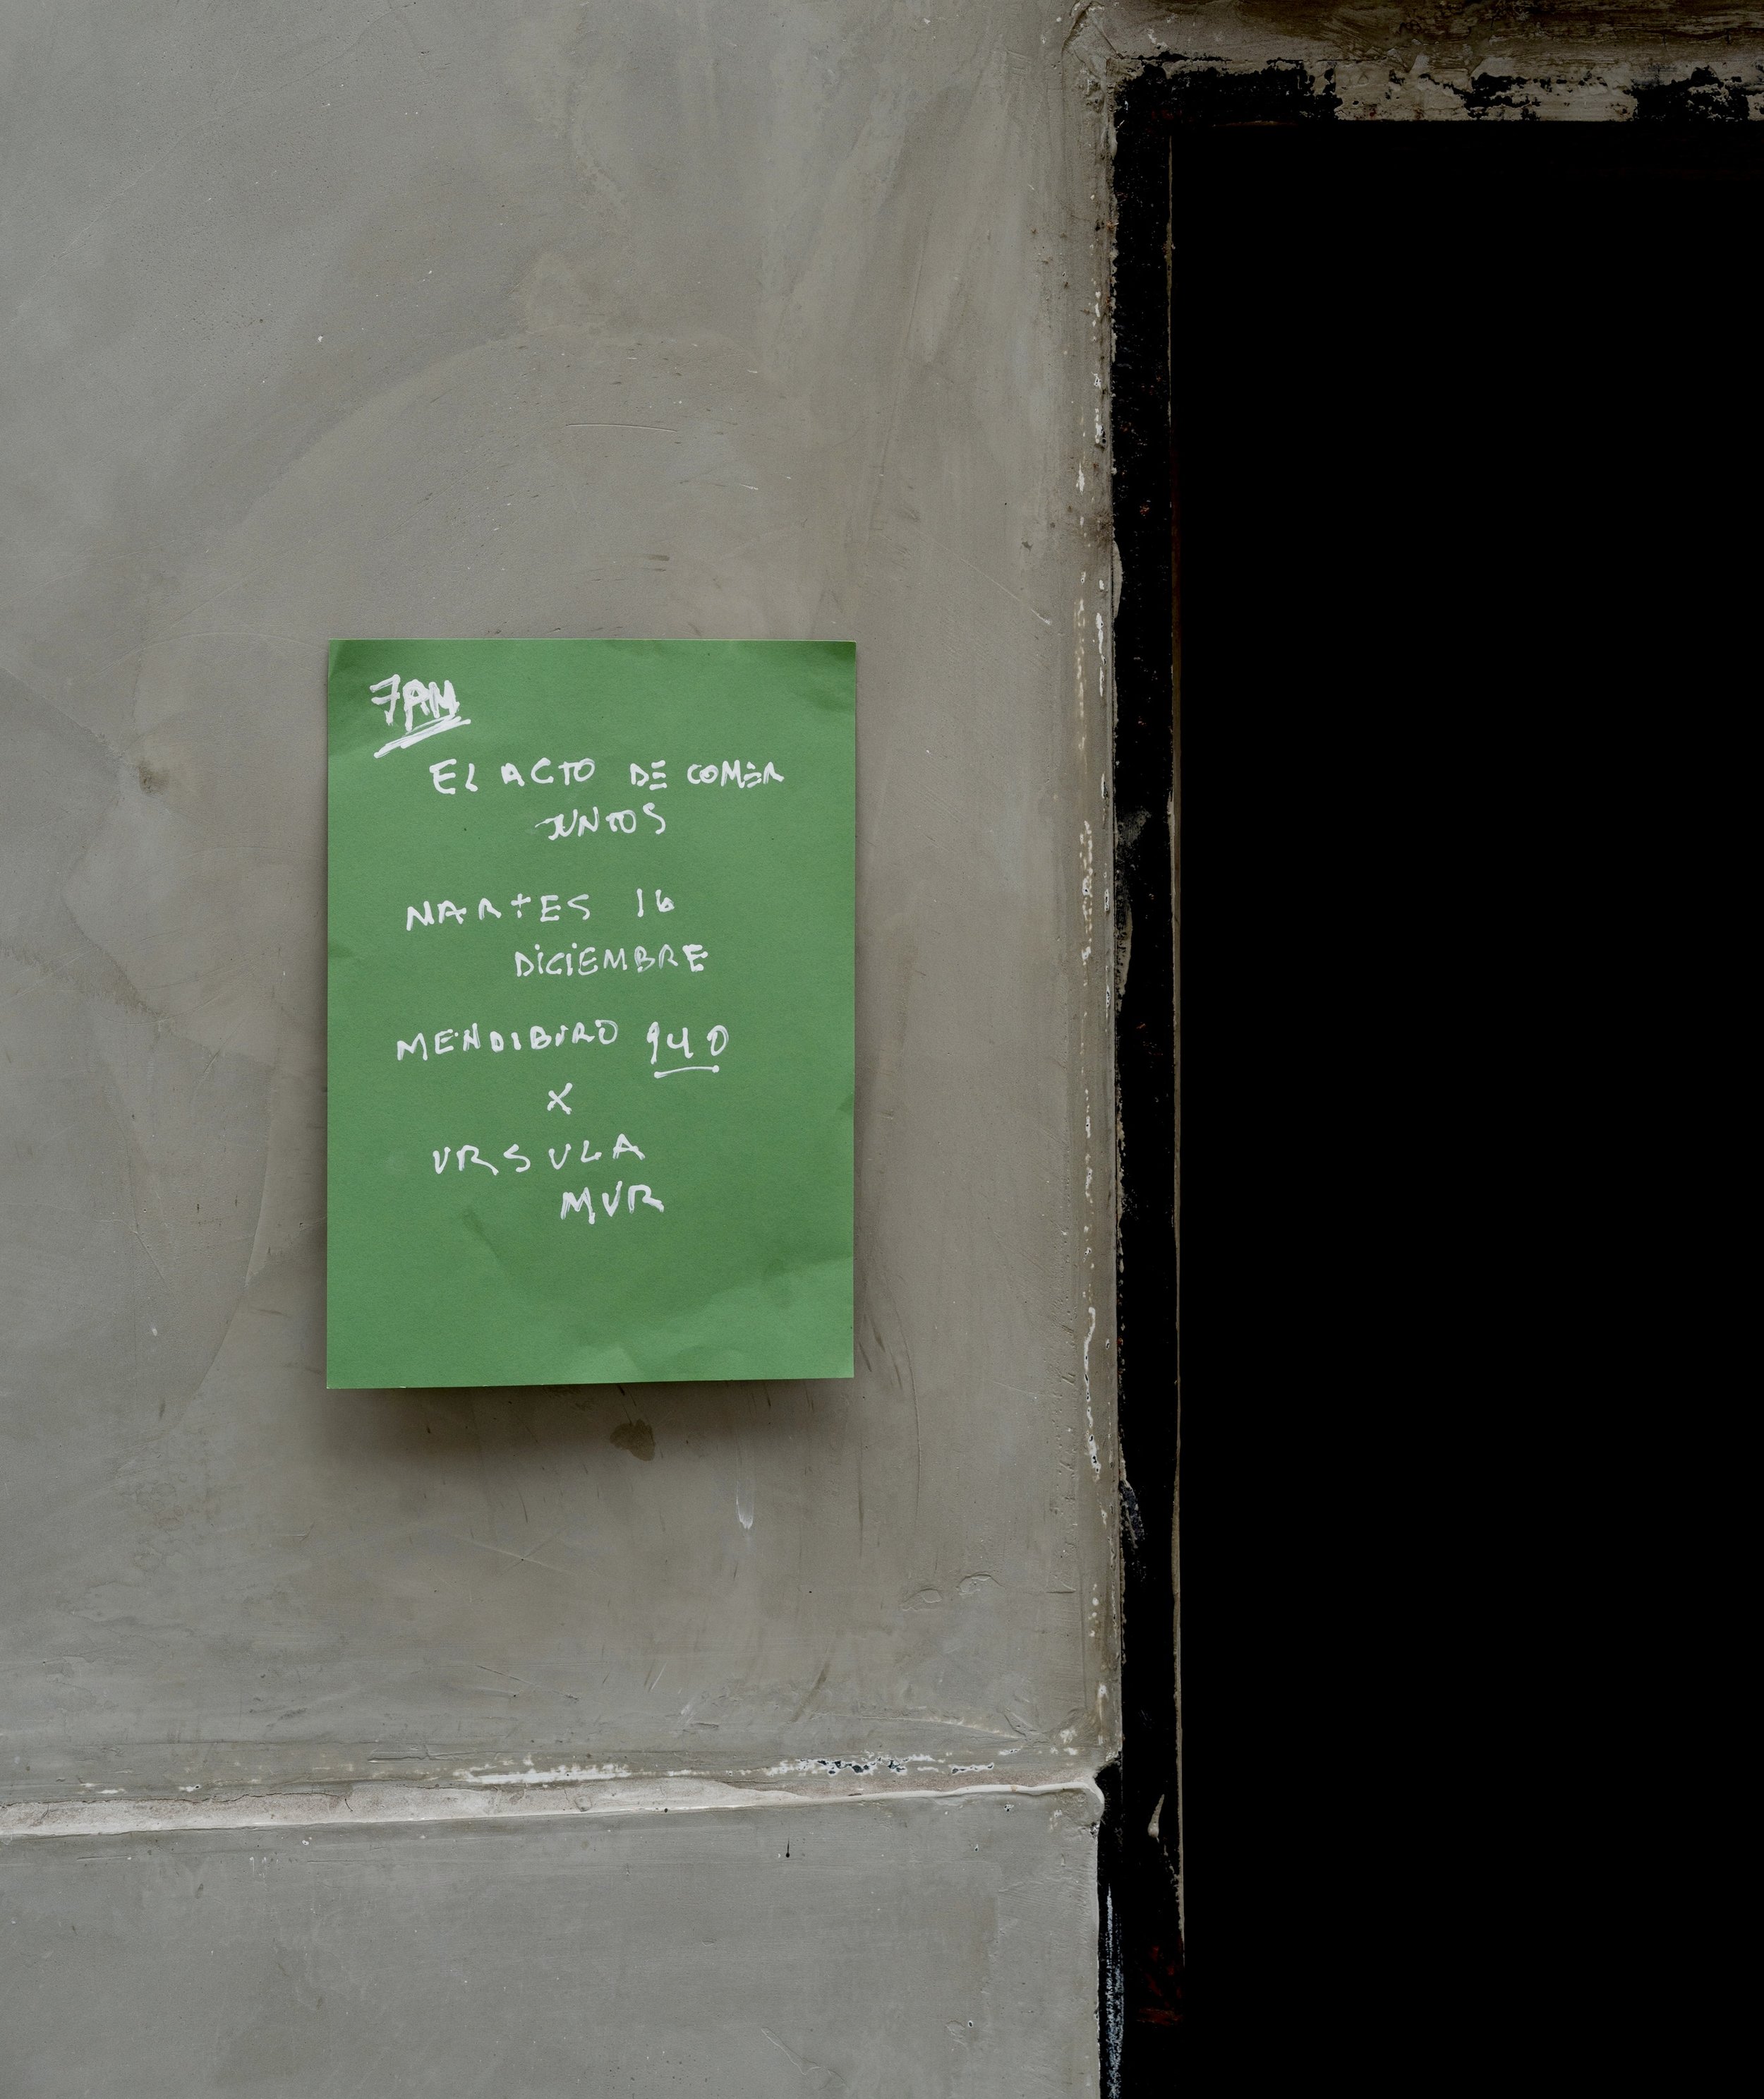 7AM
EL ACTO DE COMER
JUNTOS
MARTES 16
DICIEMBRE
MENDIBURO 940
X
URSULA
MUR